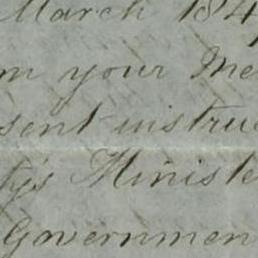 March 184
m your Me
sent instru
ty's Ministe
Governmen